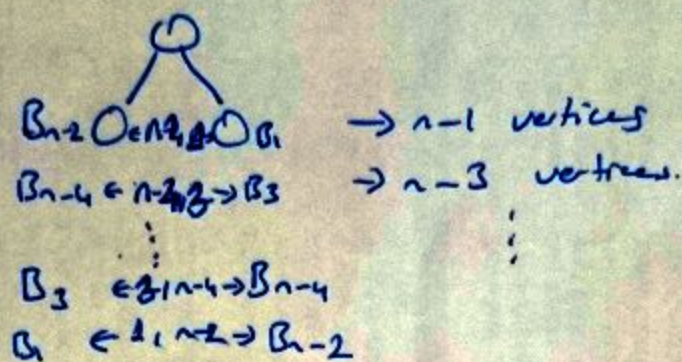 Bn-2 B1 → n-1 vertices
Bn-4 ← → B3 → n-3 vertices.
B3 ← 3, n-4 → Bn-4
B1 ← 1, n-2 → Bn-2